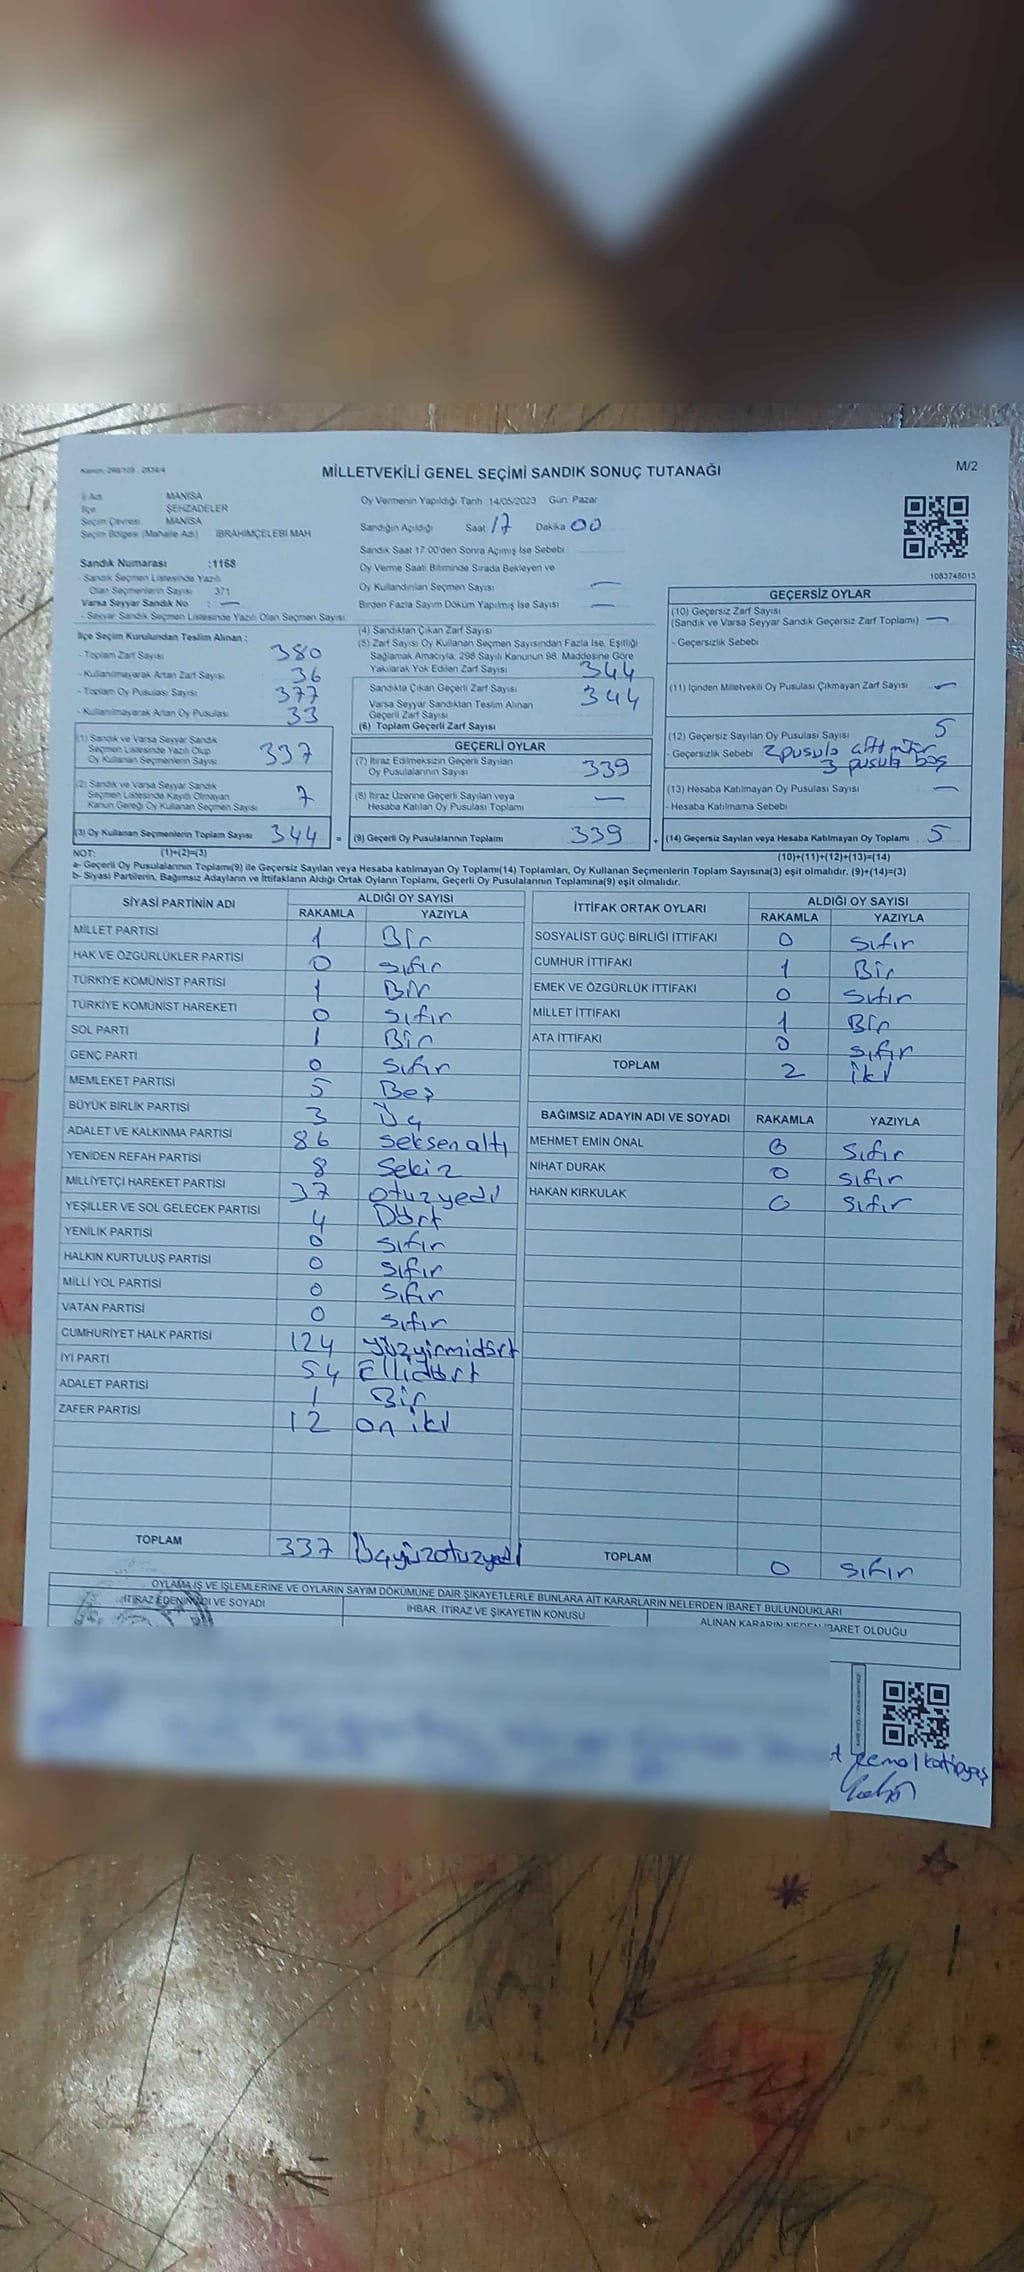 Kanun: 298/105 , 2839/4
MİLLETVEKİLİ GENEL SEÇİMİ SANDIK SONUÇ TUTANAĞI
M/2
İl Adı MANİSA
İlçe ŞEHZADELER
Seçim Çevresi MANİSA
Seçim Bölgesi (Mahalle Adı) İBRAHİMÇELEBİ MAH
Oy Vermenin Yapıldığı Tarih :14/05/2023 Gün: Pazar
Sandığın Açıldığı Saat: 17 Dakika 00
Sandık Saat 17:00'den Sonra Açılmış İse Sebebi
Oy Verme Saati Bitiminde Sırada Bekleyen ve
Oy Kullandırılan Seçmen Sayısı —
Birden Fazla Sayım Döküm Yapılmış İse Sayısı —
1083748013
Sandık Numarası :1168
- Sandık Seçmen Listesinde Yazılı
Olan Seçmenlerin Sayısı 371
Varsa Seyyar Sandık No : —
- Seyyar Sandık Seçmen Listesinde Yazılı Olan Seçmen Sayısı
İlçe Seçim Kurulundan Teslim Alınan :
- Toplam Zarf Sayısı 380
- Kullanılmayarak Artan Zarf Sayısı 36
- Toplam Oy Pusulası Sayısı 377
- Kullanılmayarak Artan Oy Pusulası 33
(1) Sandık ve Varsa Seyyar Sandık
Seçmen Listesinde Yazılı Olup
Oy Kullanan Seçmenlerin Sayısı 337
(2) Sandık ve Varsa Seyyar Sandık
Seçmen Listesinde Kayıtlı Olmayan
Kanun Gereği Oy Kullanan Seçmen Sayısı 7
(3) Oy Kullanan Seçmenlerin Toplam Sayısı 344 =
(1)+(2)=(3)
(4) Sandıktan Çıkan Zarf Sayısı
(5) Zarf Sayısı Oy Kullanan Seçmen Sayısından Fazla İse, Eşitliği
Sağlamak Amacıyla, 298 Sayılı Kanunun 98. Maddesine Göre
Yakılarak Yok Edilen Zarf Sayısı 344
Sandıkta Çıkan Geçerli Zarf Sayısı 344
Varsa Seyyar Sandıktan Teslim Alınan
Geçerli Zarf Sayısı
(6) Toplam Geçerli Zarf Sayısı
GEÇERLİ OYLAR
(7) İtiraz Edilmeksizin Geçerli Sayılan
Oy Pusulalarının Sayısı 339
(8) İtiraz Üzerine Geçerli Sayılan veya
Hesaba Katılan Oy Pusulası Toplamı —
(9) Geçerli Oy Pusulalarının Toplamı 339 +
GEÇERSİZ OYLAR
(10) Geçersiz Zarf Sayısı
(Sandık ve Varsa Seyyar Sandık Geçersiz Zarf Toplamı) —
- Geçersizlik Sebebi
(11) İçinden Milletvekili Oy Pusulası Çıkmayan Zarf Sayısı —
(12) Geçersiz Sayılan Oy Pusulası Sayısı 5
- Geçersizlik Sebebi 2 pusula çift mühür
3 pusula boş
(13) Hesaba Katılmayan Oy Pusulası Sayısı —
- Hesaba Katılmama Sebebi
(14) Geçersiz Sayılan veya Hesaba Katılmayan Oy Toplamı 5
(10)+(11)+(12)+(13)=(14)
NOT:
a- Geçerli Oy Pusulalarının Toplamı(9) ile Geçersiz Sayılan veya Hesaba katılmayan Oy Toplamı(14) Toplamları, Oy Kullanan Seçmenlerin Toplam Sayısına(3) eşit olmalıdır. (9)+(14)=(3)
b- Siyasi Partilerin, Bağımsız Adayların ve İttifakların Aldığı Ortak Oyların Toplamı, Geçerli Oy Pusulalarının Toplamına(9) eşit olmalıdır.
SİYASİ PARTİNİN ADI ALDIĞI OY SAYISI
RAKAMLA YAZIYLA
MİLLET PARTİSİ 1 Bir
HAK VE ÖZGÜRLÜKLER PARTİSİ 0 sıfır
TÜRKİYE KOMÜNİST PARTİSİ 1 Bir
TÜRKİYE KOMÜNİST HAREKETİ 0 sıfır
SOL PARTİ 1 Bir
GENÇ PARTİ 0 sıfır
MEMLEKET PARTİSİ 5 Beş
BÜYÜK BİRLİK PARTİSİ 3 Üç
ADALET VE KALKINMA PARTİSİ 86 seksenaltı
YENİDEN REFAH PARTİSİ 8 Sekiz
MİLLİYETÇİ HAREKET PARTİSİ 37 otuzyedi
YEŞİLLER VE SOL GELECEK PARTİSİ 4 Dört
YENİLİK PARTİSİ 0 sıfır
HALKIN KURTULUŞ PARTİSİ 0 sıfır
MİLLİ YOL PARTİSİ 0 sıfır
VATAN PARTİSİ 0 sıfır
CUMHURİYET HALK PARTİSİ 124 yüzyirmidört
İYİ PARTİ 54 Ellidört
ADALET PARTİSİ 1 Bir
ZAFER PARTİSİ 12 on iki
TOPLAM 337 Üçyüzotuzyedi
İTTİFAK ORTAK OYLARI ALDIĞI OY SAYISI
RAKAMLA YAZIYLA
SOSYALİST GÜÇ BİRLİĞİ İTTİFAKI 0 sıfır
CUMHUR İTTİFAKI 1 Bir
EMEK VE ÖZGÜRLÜK İTTİFAKI 0 sıfır
MİLLET İTTİFAKI 1 Bir
ATA İTTİFAKI 0 sıfır
TOPLAM 2 iki
BAĞIMSIZ ADAYIN ADI VE SOYADI RAKAMLA YAZIYLA
MEHMET EMİN ÖNAL 0 sıfır
NİHAT DURAK 0 sıfır
HAKAN KIRKULAK 0 sıfır
TOPLAM 0 sıfır
OYLAMA İŞ VE İŞLEMLERİNE VE OYLARIN SAYIM DÖKÜMÜNE DAİR ŞİKAYETLERLE BUNLARA AİT KARARLARIN NELERDEN İBARET BULUNDUKLARI
İTİRAZ EDENİN ADI VE SOYADI
İHBAR, İTİRAZ VE ŞİKAYETİN KONUSU
ALINAN KARARIN NEDEN İBARET OLDUĞU